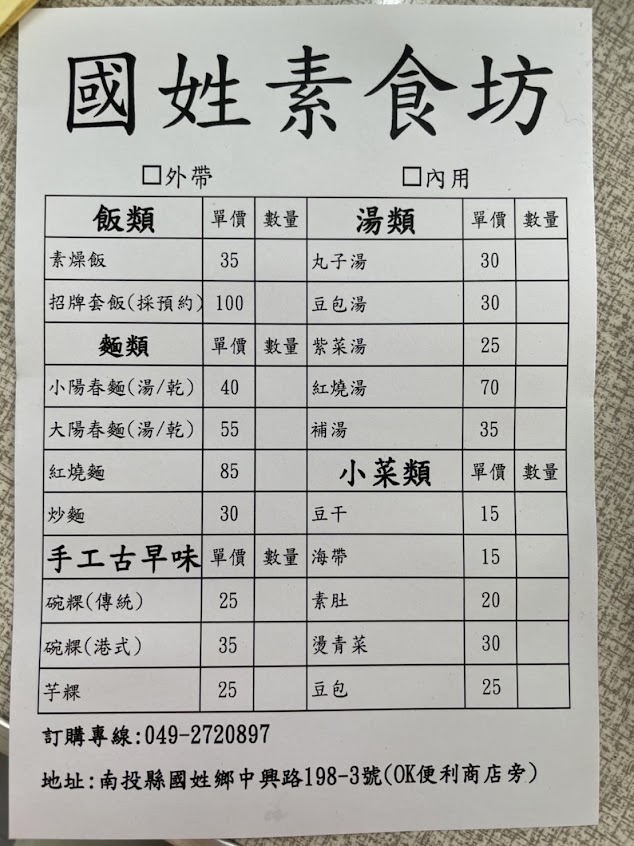 國姓素食坊
□外帶 □內用
飯類 單價 數量 湯類 單價 數量
素燥飯 35 丸子湯 30
招牌套飯(採預約) 100 豆包湯 30
麵類 單價 數量 紫菜湯 25
小陽春麵(湯/乾) 40 紅燒湯 70
大陽春麵(湯/乾) 55 補湯 35
紅燒麵 85 小菜類 單價 數量
炒麵 30 豆干 15
手工古早味 單價 數量 海帶 15
碗粿(傳統) 25 素肚 20
碗粿(港式) 35 燙青菜 30
芋粿 25 豆包 25
訂購專線:049-2720897
地址:南投縣國姓鄉中興路198-3號(OK便利商店旁)